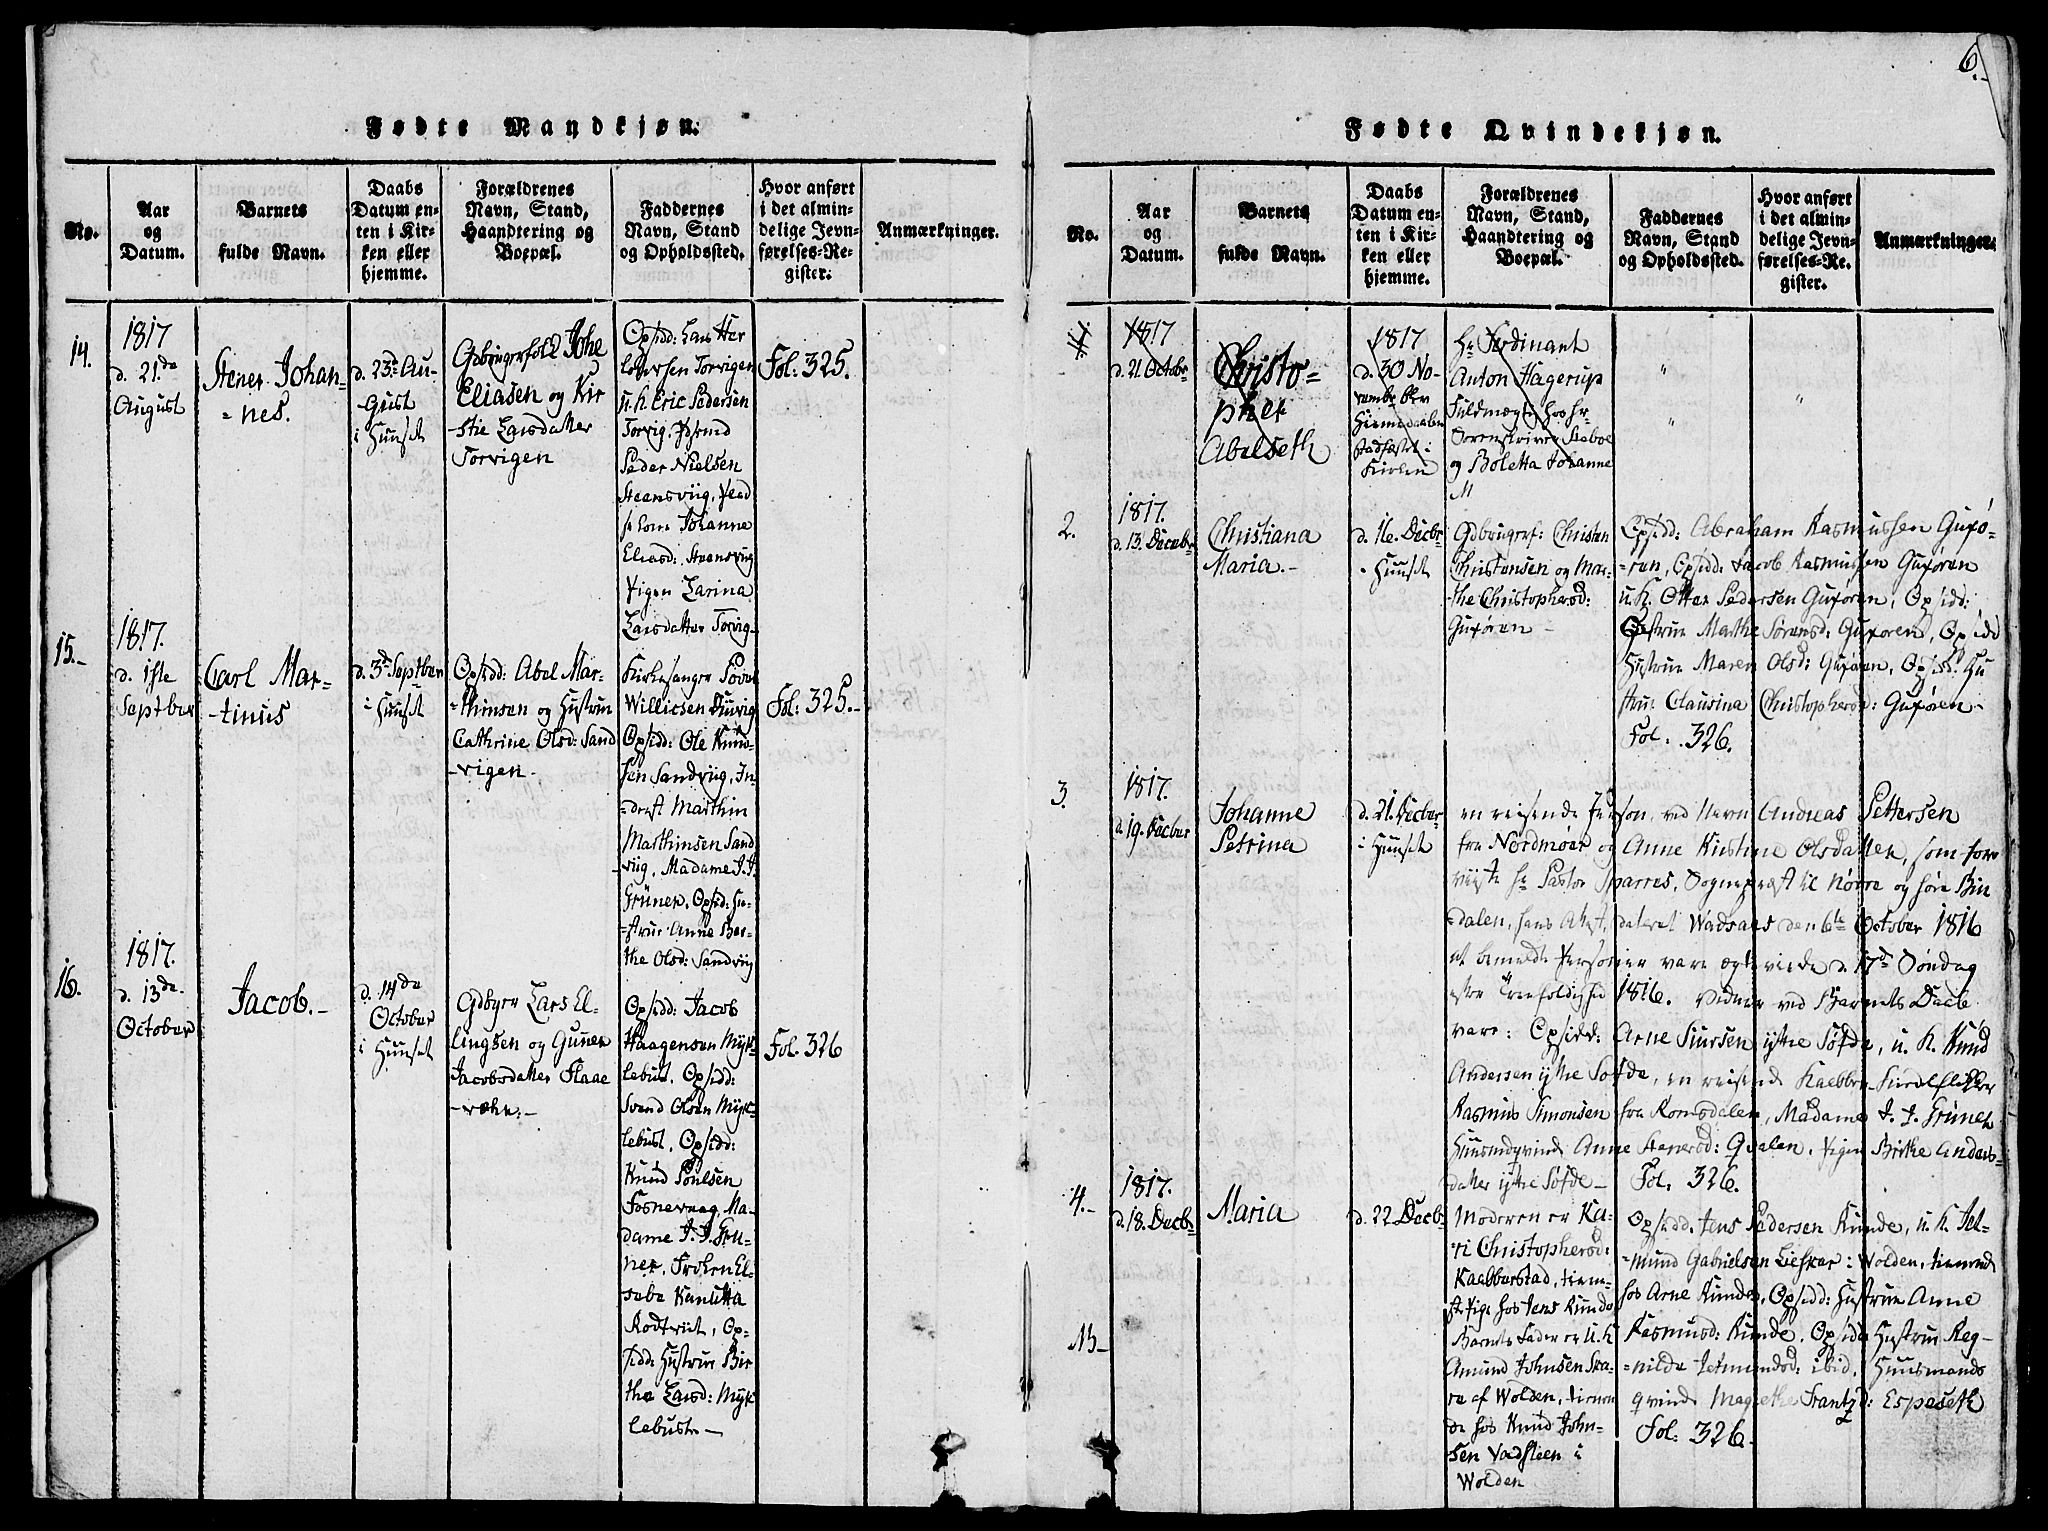 6.
Fødte Mandkjøn.
No.
Aar
og
Datum.
Barnets
fulde Navn.
Daabs
Datum en-
ten i Kir-
ken eller
hjemme.
Forældrenes
Navn, Stand,
Haandtering og
Boepæl.
Faddernes
Navn, Stand
og Opholdssted.
Hvor anført
i det almin-
delige Jevn-
førelses-Re-
gister.
Anmærkninger.
14.
1817
d. 21de
August
Stener Johan-
= nes.
d. 23de Au-
-gust
i Huuset
Gdbrugerfolk Johe
Eliasen og Kir
-stie Larsdatter
Torvigen
Opsidd: Lars
Torvigen
u. k. Eric Pedersen
Torvig,
Peder Nielsen
Steensviig,
Johanne
Eliasd: Steensviig
Pigen Larina
Larsdatter Torvig-
Fol: 325.
15.-
1817.
d. 1ste
Septber
Carl Mar-
-tinus
d. 3de Septber
i Huuset
Opsidd: Abel Mar-
=thinsen og Hustrue
Cathrine Olsd: Sand
-vigen-
Kirkesanger Povel
Willicsen
Opsidd: Ole Knud-
sen Sandviig, In-
=derst Marthin
Marthinsen Sand
-viig, Madame J. J.
Grüner, Opsid: Hu-
-strue Anne Ber-
the Olsd: Sandviig
Fol: 325.-
16.
1817.
d. 13de
October
Jacob.-
d. 14de
October
i Huuset
Gdbgr Lars El-
lingsen og Guner
Jacobsdatter Flaae
-
Opsidd: Jacob
Haagensen Myk-
lebust, Opsidd:
Svend Olsen Myk-
lebust, Opsidd:
Knud Poulsen
Fosnevaag, Ma-
dame J. J. Grü-
ner, Frøken El-
sebe
Opsidd: Hustrue Bir
the Larsd: Myk
lebust-
Fol. 326
Fødte Qvindekjøn.
No.
Aar
og
Datum.
Barnets
fulde Navn.
Daabs
Datum en-
ten i Kir-
ken eller
hjemme.
Forældrenes
Navn, Stand,
Haandtering og
Boepæl.
Faddernes
Navn, Stand
og Opholdssted.
Hvor anført
i det almin-
delige Jevn-
førelses-Re-
gister.
Anmærkninger.
1817
d. 21 Octobr
Christo=
pher
Abelseth
1817
d. 30 No-
vembr
Hiemedaaben
Stadfæstet i
Kirken
Hr Ferdinant
Anton Hagerup
Fuldmægtig hos Hr
Sorenskriver
og Boletta Johanne
M
2.
1817.
d. 13. Decebr
Christiana
Maria.-
d. 16. Decbr
- Huuset
Gdbrugerf: Christen
Christensen og Mar-
the Christophersd:
Guxøren-
Opsidd: Abraham Rasmussen Guxø-
=ren, Opsidd: Jacob Rasmussen Guxøren
u. k. Otter Pedersen Guxøren, Opsidd:
Hustrue Marthe Sørensd: Guxøren, Opsidd
Hustrue Maren Olsd: Guxøren, Opsidd: Hu
strue Clausina Christophersd: Guxøren-
Fol: 326.
3.
1817.
d. 19. Decber
Johanne
Petrina
d. 21. Decber
i Huuset
en reisende Person, ved Navn Andreas Pettersen
fra Nordmøer og Anne Kirstine Olsdatter, som fore
viiste Hr Pastor Sparres, Sognepræst til Nørre og Søre Bin
=dalen, hans Attest, dateret Wadsaas den 6te October 1816
at bemeldte Personer vare ægteviede d. 17de Søndag
efter Trefoldighed 1816. Vidner ved Barnets Daab
vare: Opsidd: Arne Siursen ytre Søfde, u. k. Knud
Andersen ytre Søfde, en reisende
Rasmus Simonsen fra Romsdalen, Madame J. J. Grüner
Huusmdqvind Anne Stenersd: Qvalen, Pigen Brithe Anders-
datter ytre Søfde- Fol: 326.
4.-
1817.
d. 18. Decbr
Maria
d. 22. Decbr
Moderen er Ka-
ri Christophersd:
Kaelberstad, tiene-
ste Pige hos Jens Runde
Barnets Fader er u. k
Amund Johnsen Ska-
re af Wolden, tienen
de hos Knud John-
sen Vadsteen i
Wolden
Opsidd. Jens Pedersen Runde, u. k. Jet-
=mund Gabrielsen Leskar i Wolden, tienende
hos Arne Runde, Opsidd: Hustrue Anne
Rasmusd: Runde, Opsidd Hustrue Reg-
=nilde Jetmundsd: ibid, Huusmands
qvinde Magrethe Frantzd: Espeseth
Fol: 326.